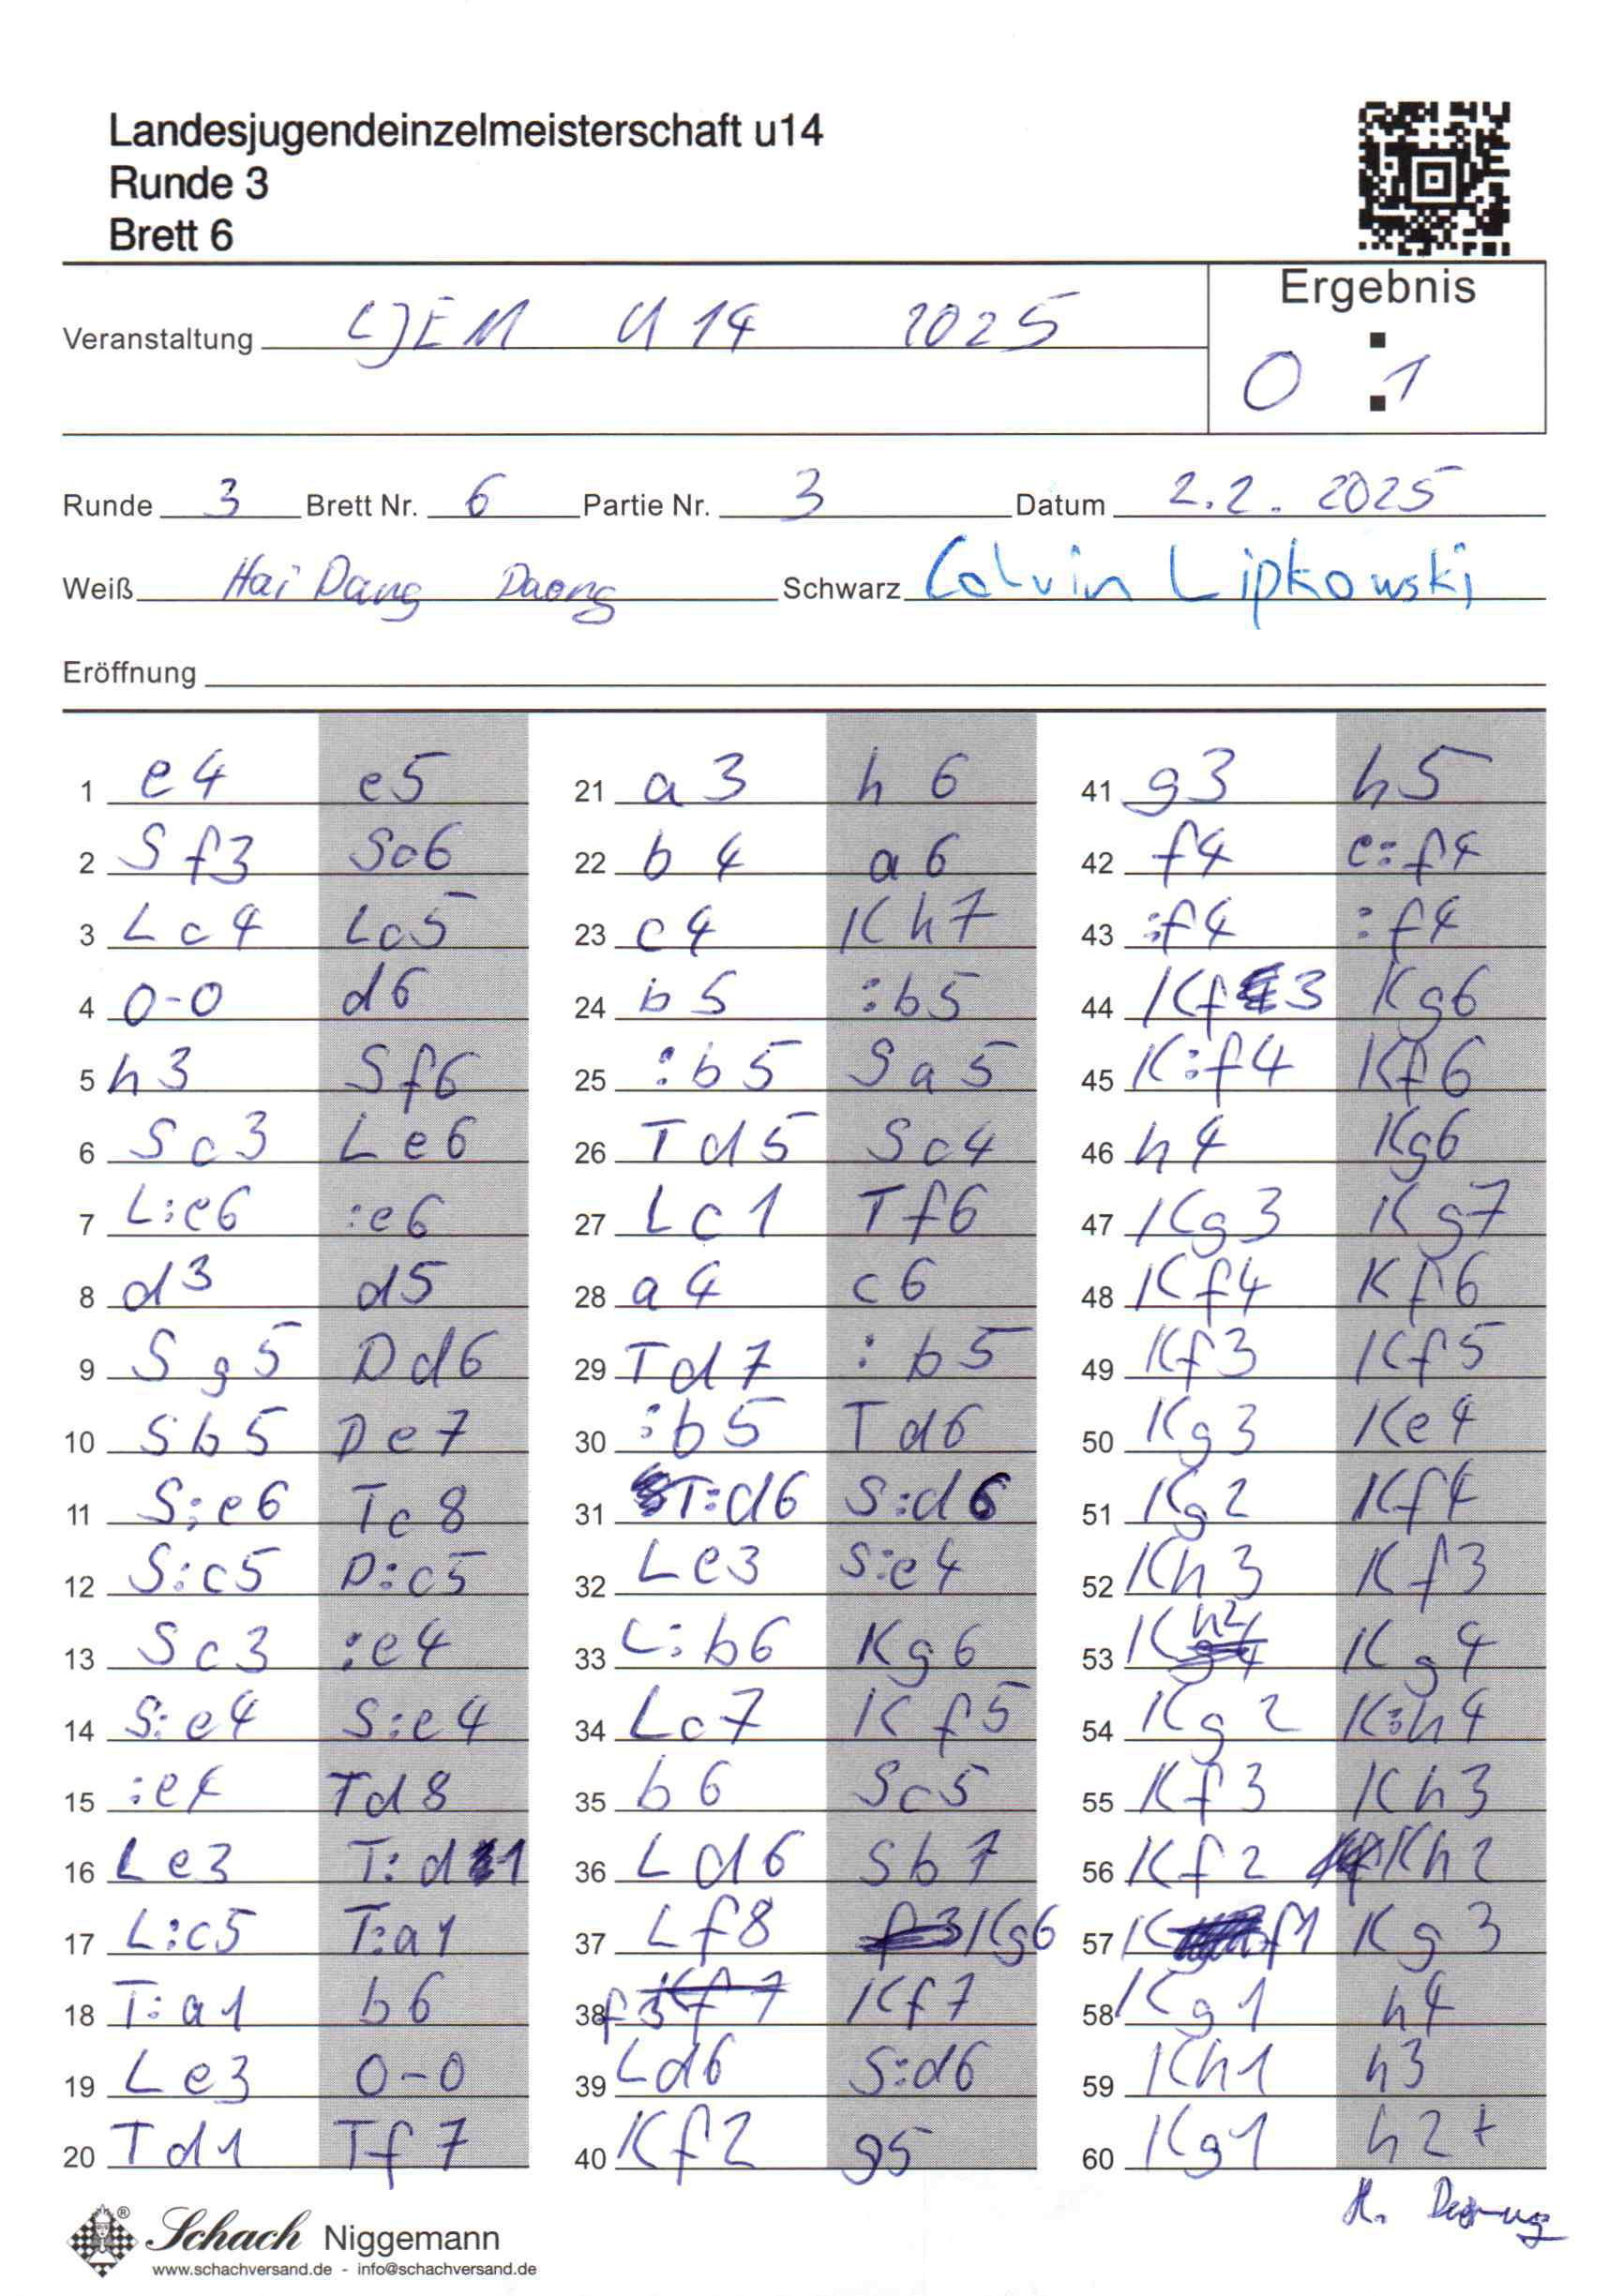 Landesjugendeinzelmeisterschaft u14
Runde 3
Brett 6
Ergebnis
Veranstaltung LJEM U14 2025
0 : 1
Runde 3 Brett Nr. 6 Partie Nr. 3 Datum 2.2. 2025
Weiß Hai Dang Duong Schwarz Calvin Lipkowski
Eröffnung
1 e4 e5
2 Sf3 Sc6
3 Lc4 Lc5
4 0-0 d6
5 h3 Sf6
6 Sc3 Le6
7 L:e6 :e6
8 d3 d5
9 Sg5 Dd6
10 Sb5 De7
11 S:e6 Tc8
12 S:c5 D:c5
13 Sc3 :e4
14 S:e4 S:e4
15 :e4 Td8
16 Le3 T:d1
17 L:c5 T:a1
18 T:a1 b6
19 Le3 0-0
20 Td1 Tf7
21 a3 h6
22 b4 a6
23 c4 Kh7
24 b5 :b5
25 :b5 Sa5
26 Td5 Sc4
27 Lc1 Tf6
28 a4 c6
29 Td7 :b5
30 :b5 Td6
31 T:d6 S:d6
32 Le3 S:e4
33 L:b6 Kg6
34 Lc7 Kf5
35 b6 Sc5
36 Ld6 Sb7
37 Lf8 Kg6
38 f3 Kf7
39 Ld6 S:d6
40 Kf2 g5
41 g3 h5
42 f4 e:f4
43 :f4 :f4
44 Kf3 Kg6
45 K:f4 Kf6
46 h4 Kg6
47 Kg3 Kg7
48 Kf4 Kf6
49 Kf3 Kf5
50 Kg3 Ke4
51 Kg2 Kf4
52 Kh3 Kf3
53 Kh2 Kg4
54 Kg2 K:h4
55 Kf3 Kh3
56 Kf2 Kh2
57 Kf1 Kg3
58 Kg1 h4
59 Kh1 h3
60 Kg1 h2+
Schach Niggemann
www.schachversand.de - info@schachversand.de